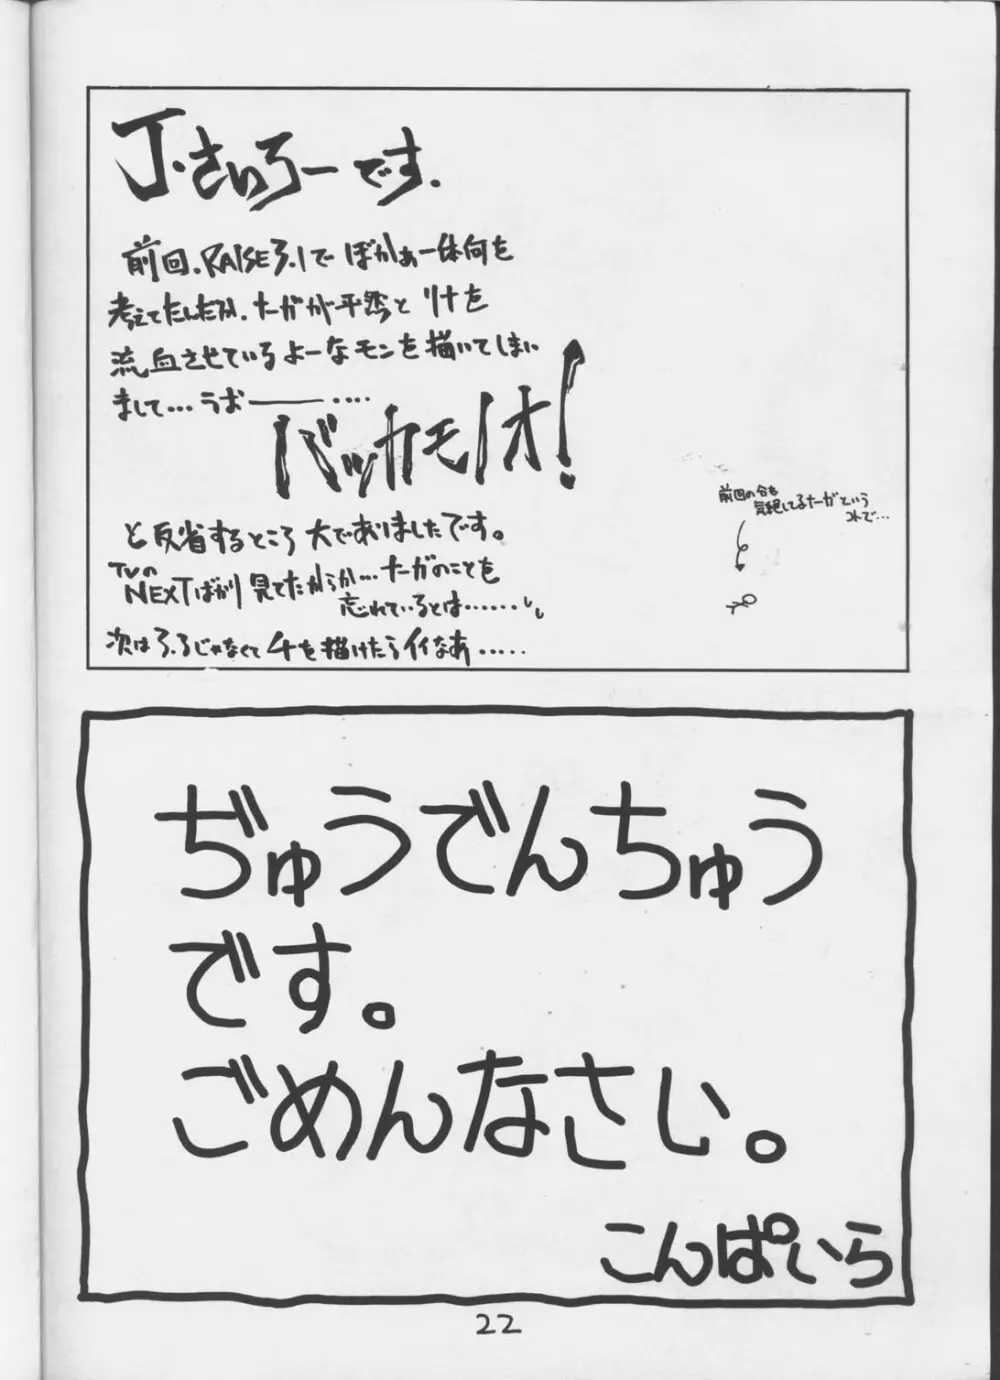 J・さいろーです.
前回、RAISE3.1で ぼかぁ一体何を
考えてたんだか、たーがが平然と リナを
流血させているよーなモンを描いてしまい
まして... うおーーー....
バッカモノオ!
と反省するところ 大でありましたです。
TVの
NEXTばかり見てたからか... たーがのことを
忘れているとは......
次は3.3じゃなくて4を描けたらイイなあ.....
前回の分も
気絶してるたーがという
コトで...
ぢゅうでんちゅう
です。
ごめんなさい。
こんぱいら
22